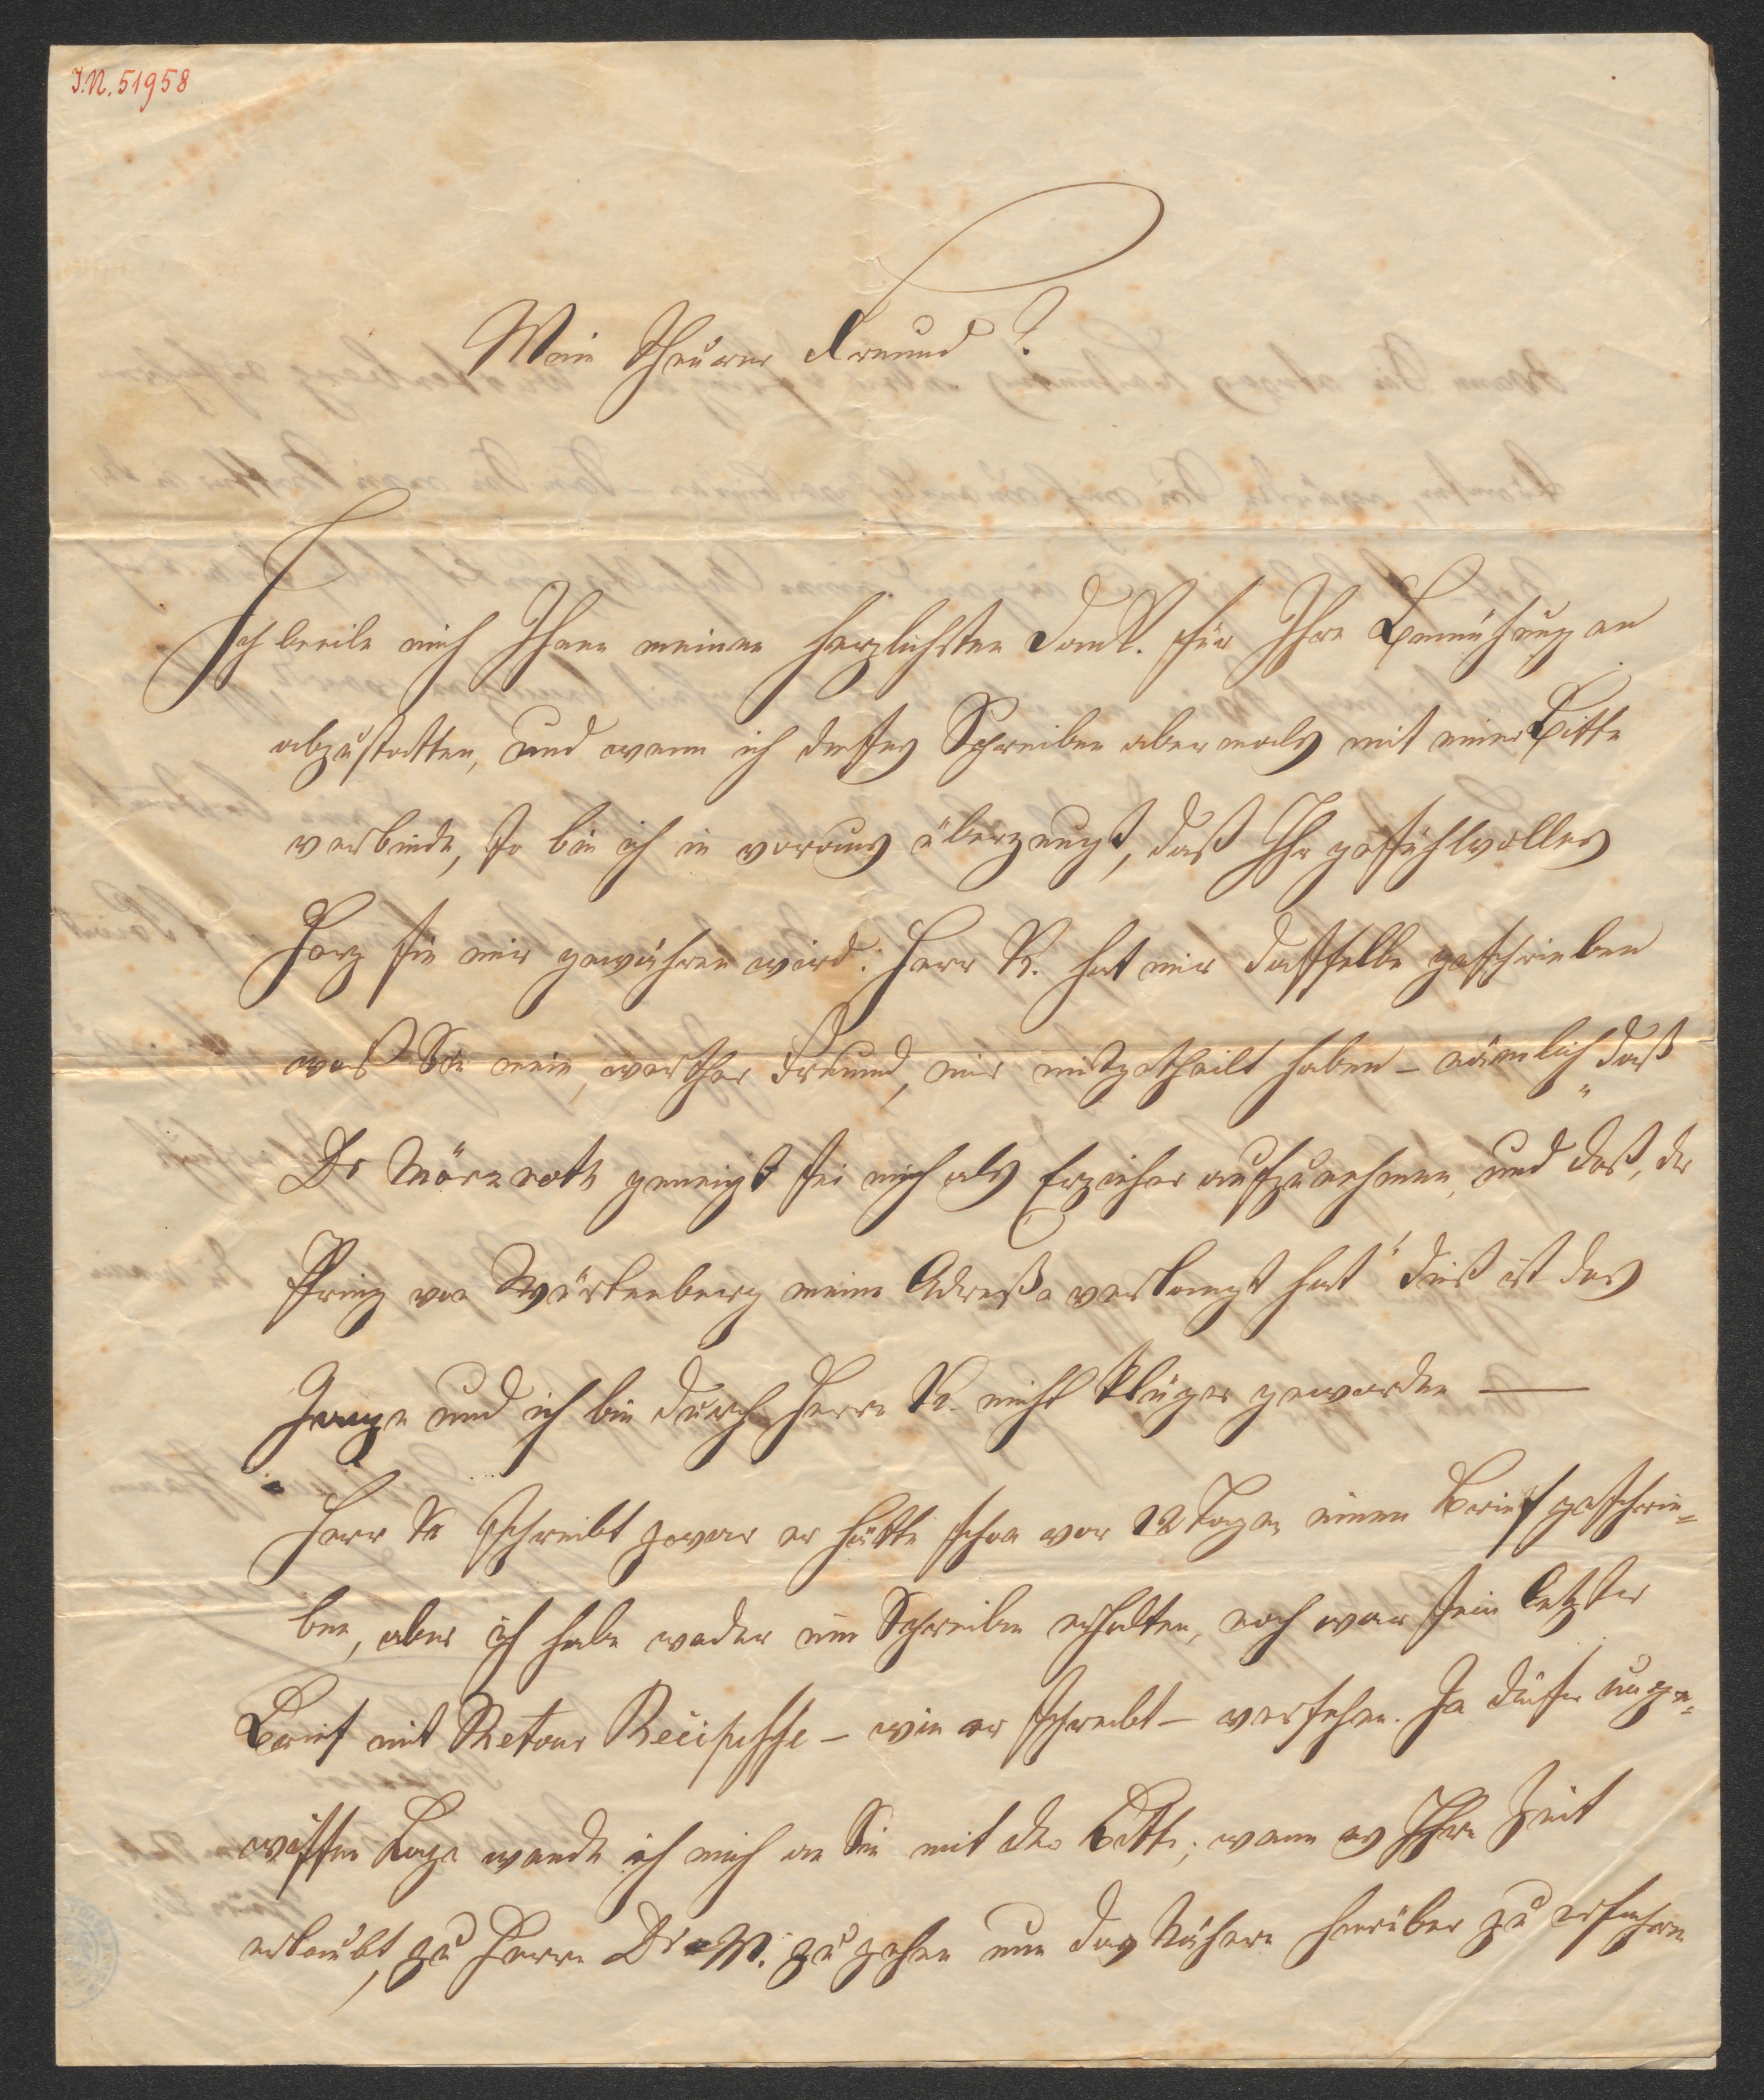 I.N. 51958
Mein theurer Freund!
Ich beeile mich Ihnen meinen herzlichsten Dank für Ihre Bemühungen
abzustatten, und wenn ich dieses Schreiben abermals mit einer Bitte
verbinde, so bin ich in voraus überzeugt, daß Ihr gefühlvolles
Herz sie mir gewähren wird. Herr R. hat mir dasselbe geschrieben
was Sie mein, werther Freund, mir mitgetheilt haben – nämlich „daß
Dr Märzroth geneigt sei mich als Erzieher aufzunehmen, und daß, der
Prinz von Würtenberg meine Adreße verlangt hat" dieß ist das
Ganze und ich bin durch Herrn R. nicht klüger geworden —
Herr R schreibt zwar er hätte schon vor 12 Tagen einen Brief geschrie=
ben, aber ich habe weder ein Schreiben erhalten, noch war sein letzter
Brief mit Retour Recipisse – wie er schreibt – versehen. In dieser unge=
wissen Lage wende ich mich an Sie mit der Bitte, wenn es Ihre Zeit
erlaubt, zu Herrn Dr M. zu gehen um das Nähere hierüber zu erfahren